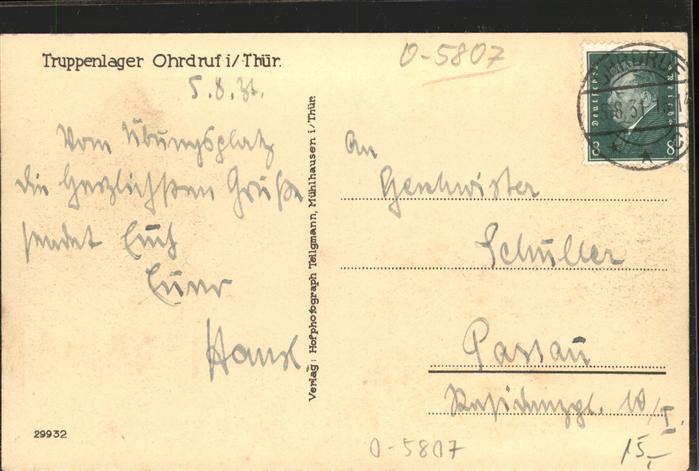 Truppenlager Ohrdruf i/Thür.
5.8.31.
Vom Übungsplatz
die herzlichsten Grüße
sendet Euch
Euer
Hansl
29932
Verlag: Hofphotograph Tellgmann, Mühlhausen i/Thür.
O-5807
An
Geschwister
Schüller
Passau
Residenzpl. 10/I.
O-5807
15,-
OHRDRUF
8.31
Deutsches Reich
8 8